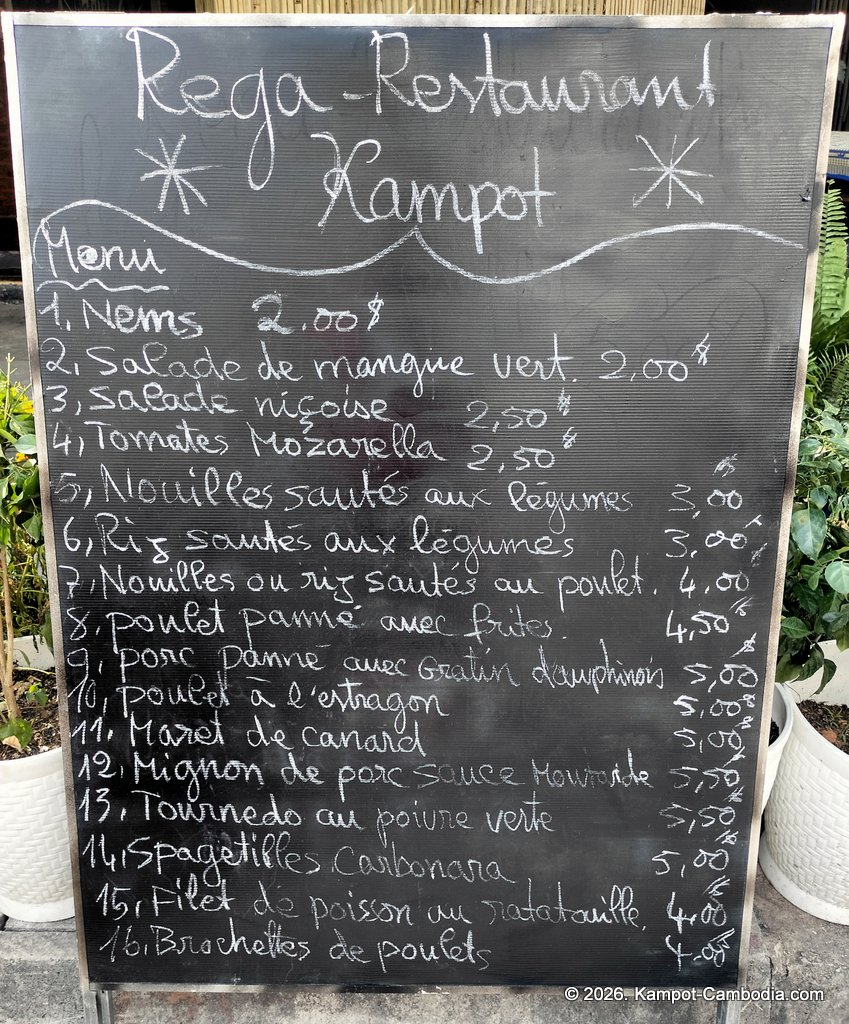 Rega-Restaurant
Kampot
Menu
1. Nems 2.00$
2, Salade de mangue vert. 2,00$
3, Salade niçoise 2,50$
4, Tomates Mozarella 2,50$
5, Nouilles sautés aux légumes 3,00$
6, Riz sautés aux légumes 3,00$
7, Nouilles ou riz sautés au poulet. 4,00$
8, poulet panné avec frites. 4,50$
9, porc panné avec Gratin dauphinois 5,00$
10, poulet à l'estragon 5,00$
11. Maret de canard 5,00$
12, Mignon de porc sauce Moutarde 5,50$
13, Tournedo au poivre verte 5,50$
14, Spagetilles Carbonara 5,00$
15, Filet de poisson au ratatouille, 4,00$
16, Brochettes de poulets 4,00$
© 2026. Kampot-Cambodia.com